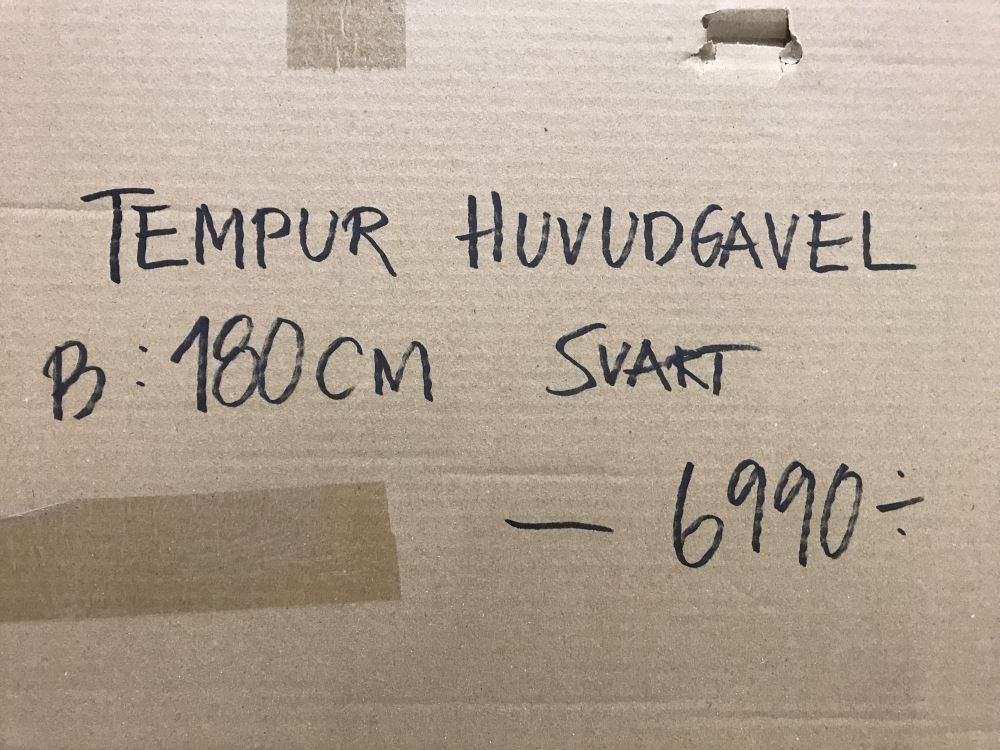 TEMPUR HUVUDGAVEL
B: 180CM SVART
— 6990÷